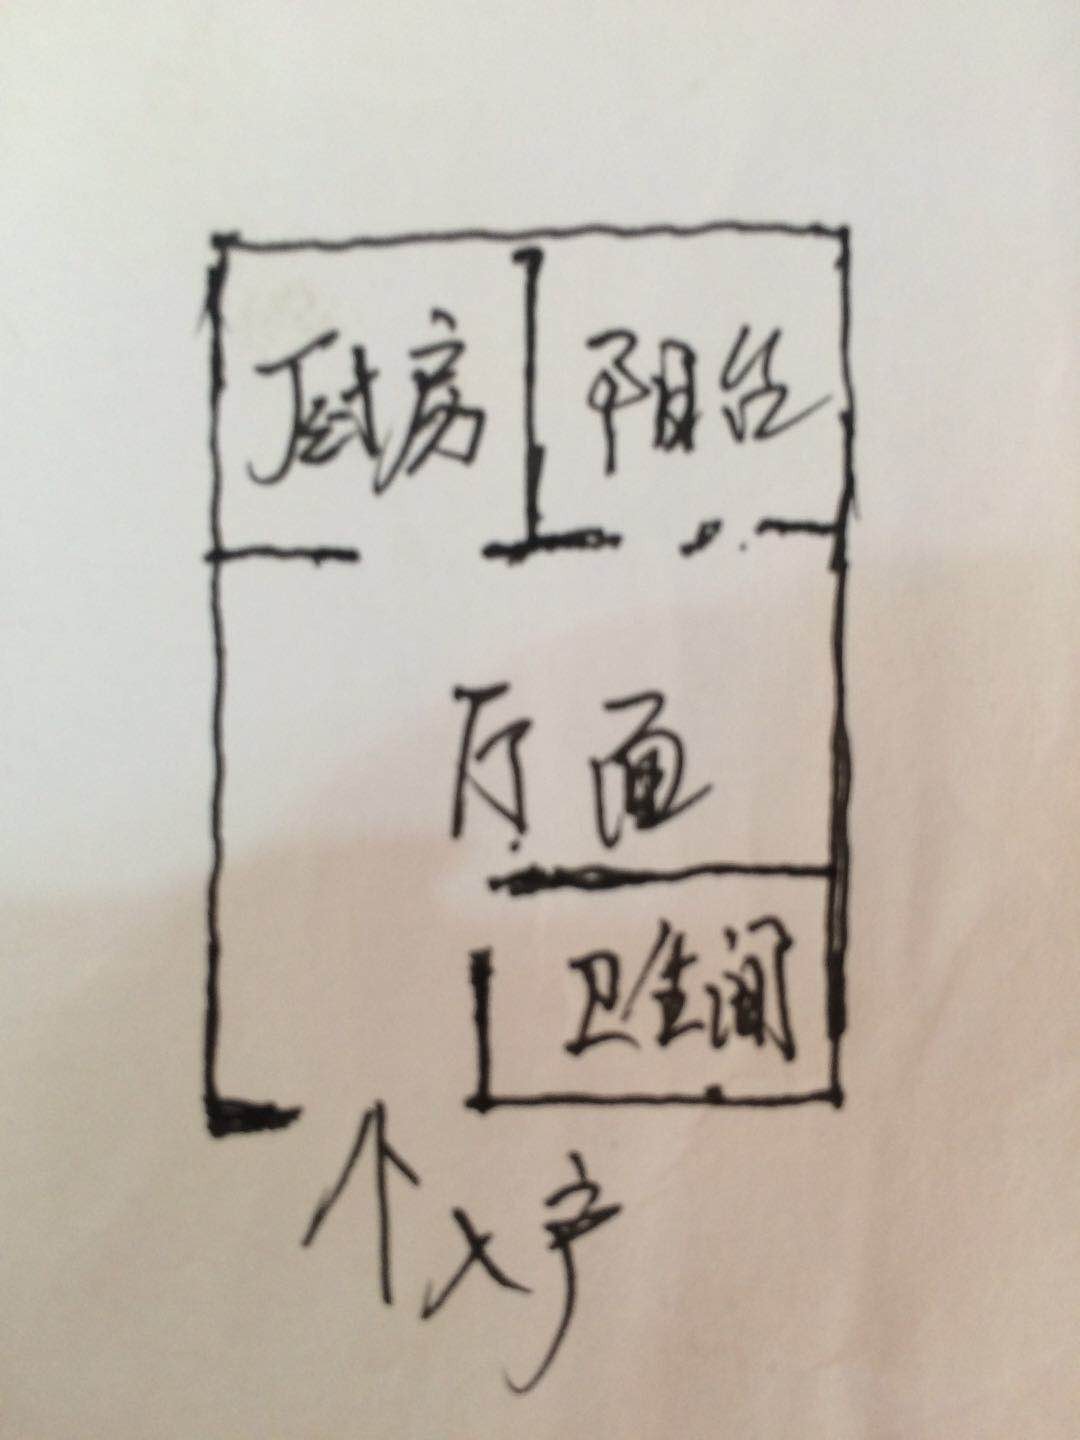 厨房 阳台
厅面
卫生间
入户